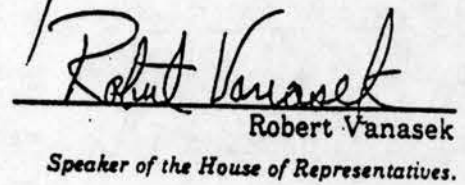 Robert Vanasek
Robert Vanasek
Speaker of the House of Representatives.